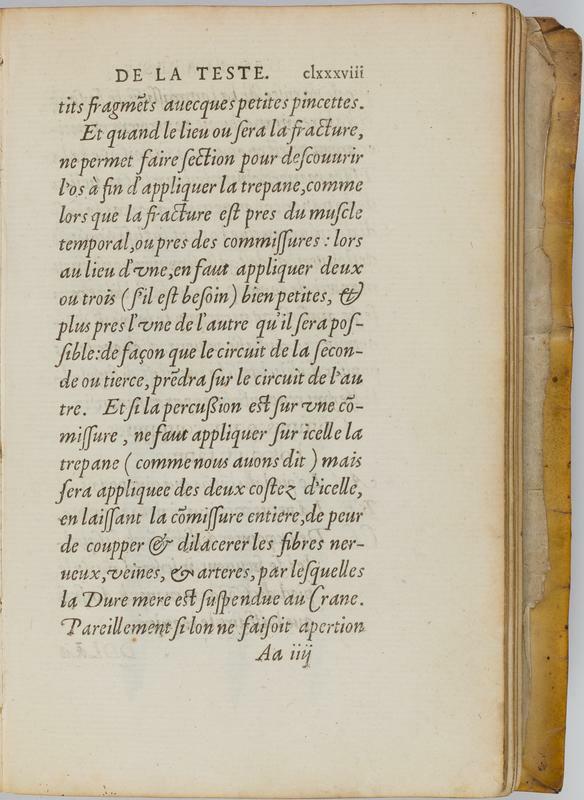 DE LA TESTE. clxxxviii
tits fragmẽts auecques petites pincettes.
Et quand le lieu ou sera la fracture,
ne permet faire section pour descouurir
l'os à fin d'appliquer la trepane, comme
lors que la fracture est pres du muscle
temporal, ou pres des commissures : lors
au lieu d'vne, en faut appliquer deux
ou trois (s'il est besoin) bien petites, &
plus pres l'vne de l'autre qu'il sera pos-
sible: de façon que le circuit de la secon-
de ou tierce, prẽdra sur le circuit de l'au
tre. Et si la percußion est sur vne cõ-
missure , ne faut appliquer sur icelle la
trepane ( comme nous auons dit ) mais
sera appliquee des deux costez d'icelle,
en laissant la cõmissure entiere, de peur
de coupper & dilacerer les fibres ner-
ueux, veines, & arteres, par lesquelles
la Dure mere est suspendue au Crane.
Pareillement si lon ne faisoit apertion
Aa iiij